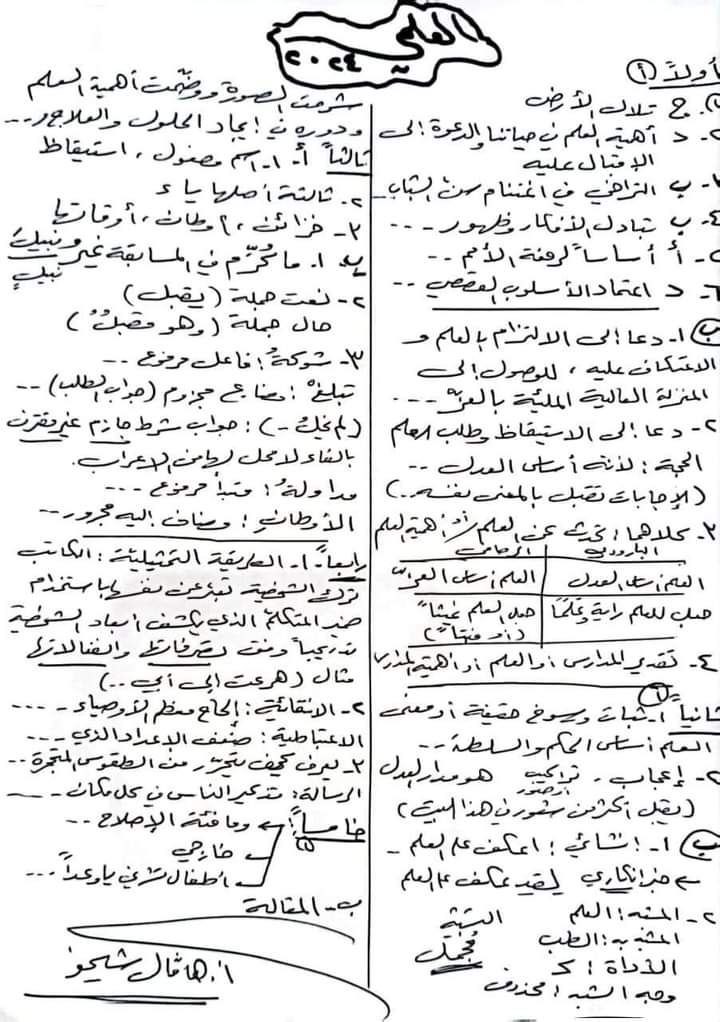 العلمي
٢٠٢٤
أولاً (أ)
١. ج تلال الأرض
٢. د أهمية العلم في حياتنا والدعوة إلى
الإقبال عليه
٣. ب التراخي في اغتنام سن الشباب
٤. ب تبادل الأفكار وظهور ...
٥. أ أساساً لرفعة الأمم ..
٦. د اعتماد الأسلوب القصصي ..
(ب) ١. دعا إلى الالتزام بالعلم و
الاعتكاف عليه، للوصول إلى
المنزلة العالية المليئة بالعزّ ...
٢. دعا إلى الاستيقاظ وطلب العلم
الحجة: لأنه أساس العدل ..
(الإجابات تقبل بالمعنى نفسه..)
٣. كلاهما: تحدث عن العلم / أو أهمية العلم
البارودي الرصافي
العلم أساس العدل العلم أساس العز
جعل للعلم راية وقلماً جعل العلم غيثاً
٤. تقدير المدارس أو العلم أو أهمية المدارس
ثانياً (أ) ١. ثبات ورسوخ حقيقة أو معنى
العلم أساس الحكم والسلطة ..
٢. إعجاب. تراكيب هو مدار العدل
(يقبل أكثر من شعور في هذا البيت)
(ب) ١. إنشائي: اعكف على العلم
خبر إنكاري لقد عكف على العلم
٢. المشبه: العلم
المشبه به: القطب
الأداة: كـ
وجه الشبه: محذوف
التشبيه
مُجمل
شرحت الصورة ووضّحت أهمية العلم
ودوره في إيجاد الحلول والعلاج ...
ثالثاً أ. ١. اسم مفعول، استيقاظ
٢. ثالثة أصلها ياء
٣. خزائن، أوطان، أوقاتها
ب ١. ما كُرّم في المسابقة غير نبيل
٢. نعت جملة (يقبل)
حال جملة (وهو مقبلٌ)
٣. شوكةُ: فاعل مرفوع ..
تبلغْ: مضارع مجزوم (جواب الطلب) ..
(لم يخل ..): جواب شرط جازم غير مقترن
بالفاء لا محل لها من الإعراب.
مداولةُ: مبتدأ مرفوع ...
الأوطانِ: مضاف إليه مجرور ..
رابعاً ١. الطريقة التمثيلية: الكاتب
ترك الشخصية تعبر عن نفسها باستخدام
ضمير المتكلم الذي يكشف أبعاد الشخصية
تدريجياً وفق تصرفاتها وانفعالاتها
مثال (هرعت إلى أبي ..)
٢. الانتقائية: إلحاح معظم الأوصياء ...
الاعتباطية: ضعف الإعداد الذي ...
٣. يعرف كيف يتحرّر من الطقوس المتحجرة ..
الرسالة: تذكير الناس في كل مكان ...
خامساً: (أ) وما فئة الإصلاح ..
خارجي
أطفال تشرين يا وعداً ...
ب. المقالة
أ. هاڤال شيخو